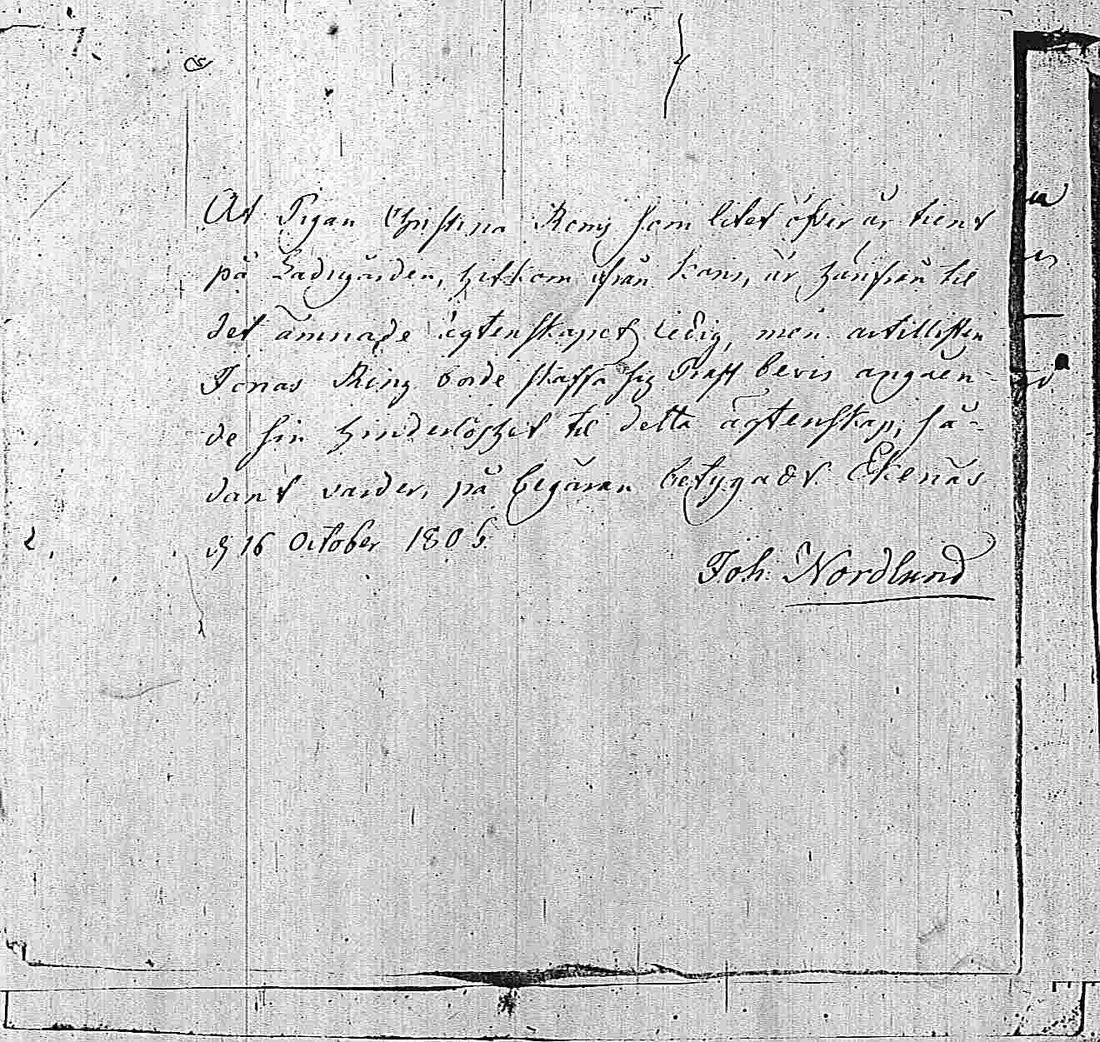 At Pigan Christina Reng som litet öfver år tient
på Ladugården, hitkom ifrån Karis, är härifrån til
det ämnade ägtenskapet ledig, men artilleristen
Jonas Ring borde skaffa sig Präst bevis angåen-
de sin hinderlöshet til detta ägtenskap, så-
dant varder, på begäran betygadt. Ekenäs
d 16 October 1805.
Joh: Nordlund